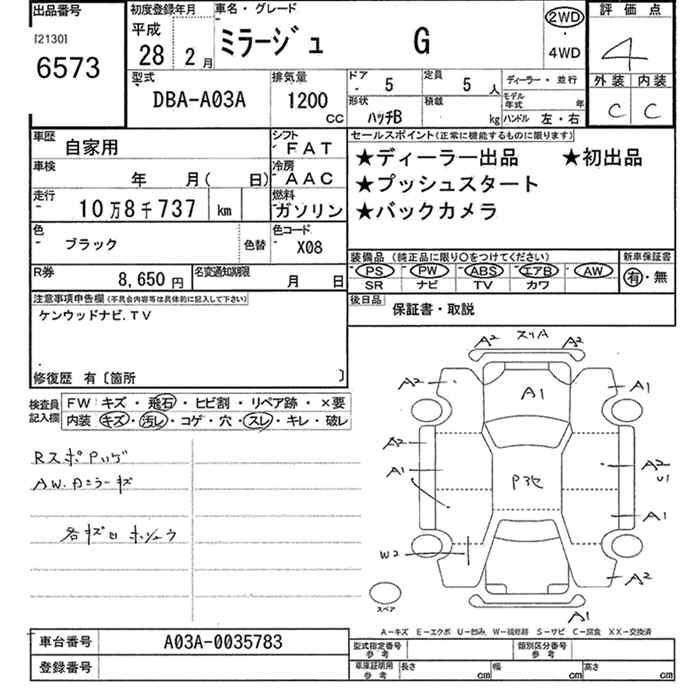 出品番号 初度登録年月 車名・グレード 評価点
[2130] 平成 2WD
6573 28 2月 ミラージュ G ・ 4
4WD
型式 排気量 ドア 定員 ディーラー・並行 外装 内装
DBA-A03A 1200 CC 5 5 人 モデル年式 年 C C
形状 積載
ハッチB kg ハンドル 左・右
車歴 自家用 シフト FAT セールスポイント(正常に機能するものに限ります)
車検 年 月( 日) 冷房 AAC ★ディーラー出品 ★初出品
走行 10万8千737 km 燃料 ガソリン ★プッシュスタート
★バックカメラ
色 ブラック 色替 色コード X08
装備品 (純正品に限り○をつけてください) 新車保証書
PS PW ABS エアB AW 有・無
SR ナビ TV カワ
R券 8,650円 名変通知期限 月 日
後日品 保証書・取説
注意事項申告欄(不具合内容等は具体的に記入して下さい)
ケンウッドナビ.TV
修復歴 有〔箇所 〕
検査員記入欄 FW キズ・飛石・ヒビ割・リペア跡・×要
内装 キズ・汚レ・コゲ・穴・スレ・キレ・破レ
A2 スリA A2
A2 A1 A1
RスポPハゲ A2
AW.Aミラーキズ A1 A2
U1
A1
W2
A2
スペア
A1
A-キズ E-エクボ U-凹み W-補修跡 S-サビ C-腐食 XX-交換済
車台番号 A03A-0035783 型式指定番号参考 類別区分番号参考
登録番号 車庫証明用参考 長さ cm 幅 cm 高さ cm